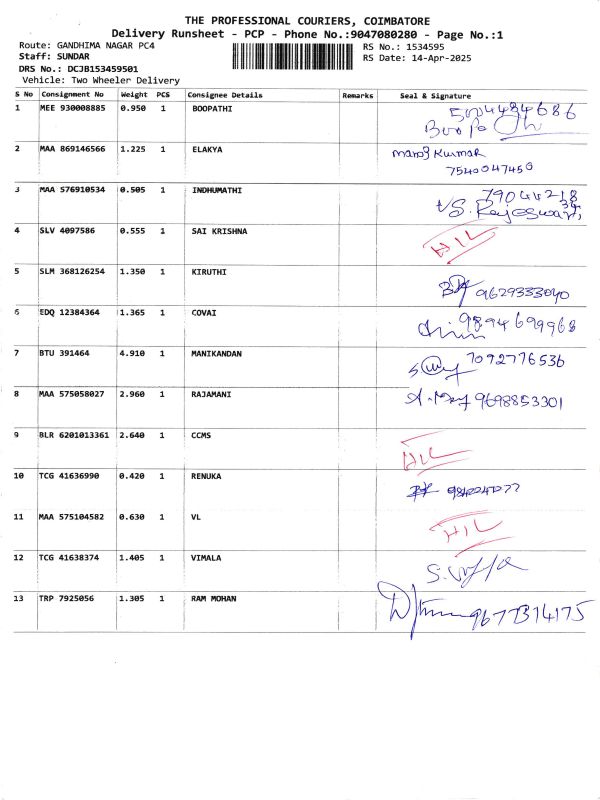 THE PROFESSIONAL COURIERS, COIMBATORE
Delivery Runsheet - PCP - Phone No.:9047080280 - Page No.:1
Route: GANDHIMA NAGAR PC4 RS No.: 1534595
Staff: SUNDAR RS Date: 14-Apr-2025
DRS No.: DCJB153459501
Vehicle: Two Wheeler Delivery
S No Consignment No Weight PCS Consignee Details Remarks Seal & Signature
1 MEE 930008885 0.950 1 BOOPATHI
2 MAA 869146566 1.225 1 ELAKYA Manoj Kumar
7540047450
3 MAA 576910534 0.505 1 INDHUMATHI
S. Rajeswari
4 SLV 4097586 0.555 1 SAI KRISHNA HIL
5 SLM 368126254 1.350 1 KIRUTHI 9629333040
6 EDQ 12384364 1.365 1 COVAI 9894699968
7 BTU 391464 4.910 1 MANIKANDAN 7092776536
8 MAA 575058027 2.960 1 RAJAMANI 9698853301
9 BLR 6201013361 2.640 1 CCMS HIL
10 TCG 41636990 0.420 1 RENUKA
11 MAA 575104582 0.630 1 VL HIL
12 TCG 41638374 1.405 1 VIMALA
13 TRP 7925056 1.305 1 RAM MOHAN 9677314175